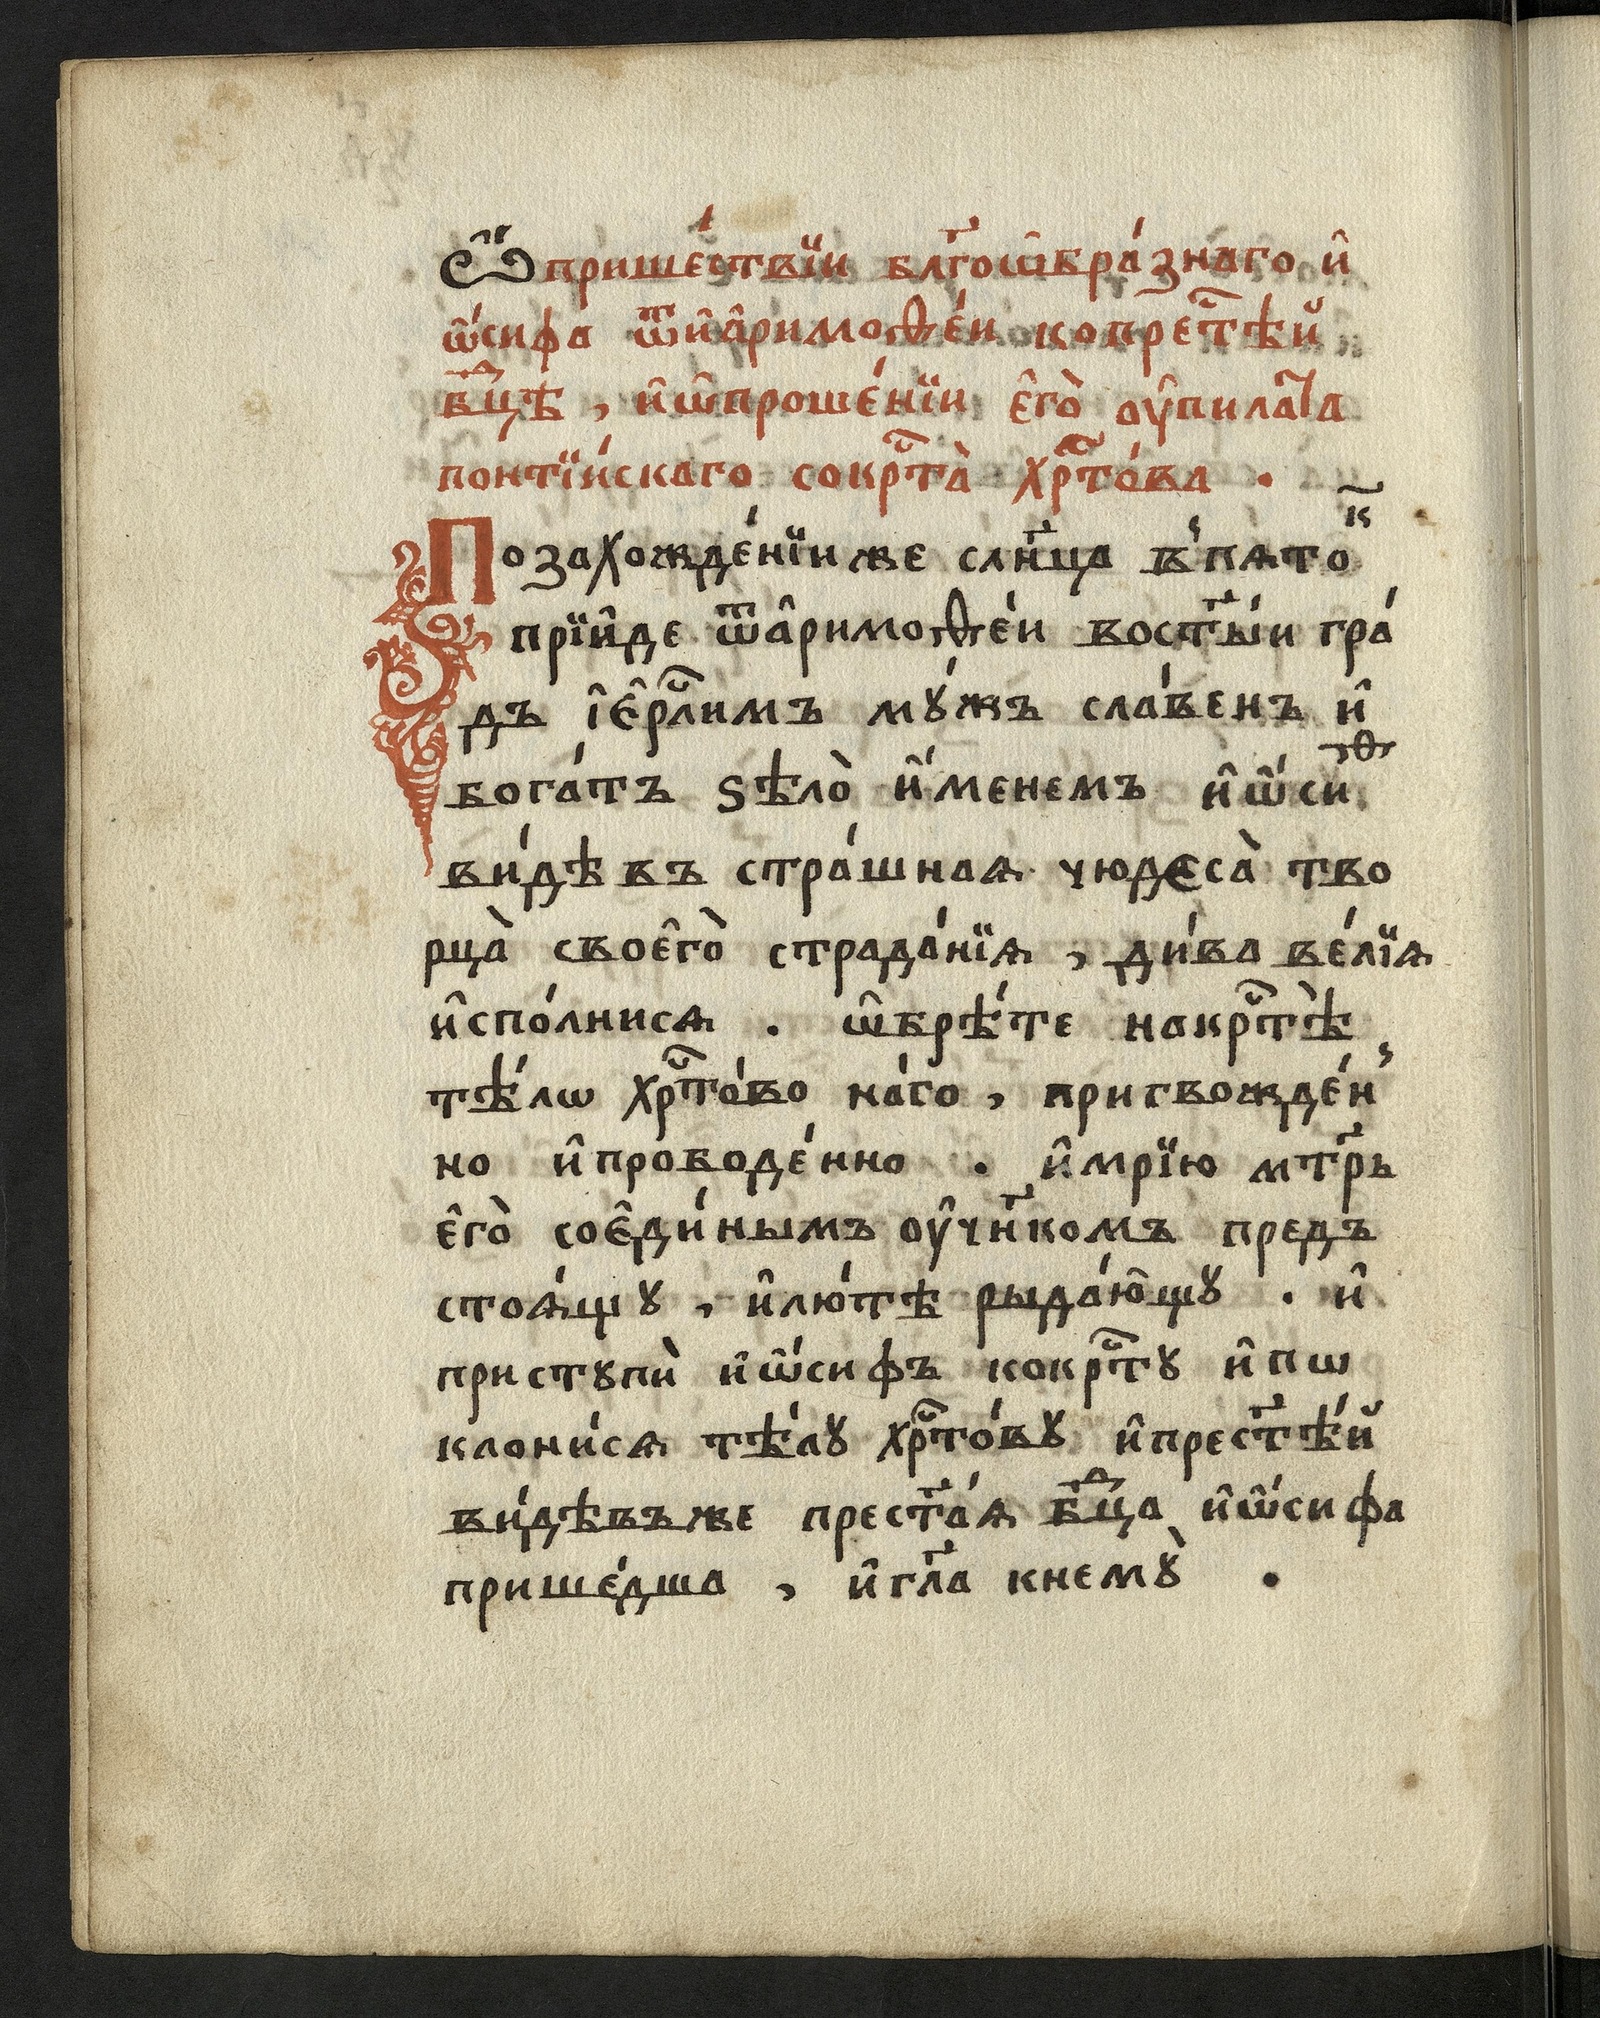 Ѽ прише́ствїи бл҃гоѡ҆бра́знаго и҆
ѡ҆́сифа ѿ и҆а҆римоѳе́и ко прест҃ѣй
бц҃дѣ , и҆ ѡ҆ проше́нїи є҆гѡ̀ ѹ҆ пила́та
понті́йскаго со крⷭ҇та̀ хрⷭ҇то́ва .
По захожде́нїи же слн҃ца в̾ пято́к
прїи҆де ѿ а҆римоѳе́и во ст҃ы́и гра́
дъ і҆є҆рⷭ҇лимъ мꙋ́жъ сла́венъ и҆
бога́тъ ѕѣлѡ̀ и҆́менемъ и҆ѡ҆́сиѳ
ви́дѣвъ стра́шная чюдеса̀ тво
рца̀ своє҆го̀ страда́нїѧ , ди́ва ве́лїѧ
и҆спо́лнисѧ . ѡ҆брѣ́те на крⷭ҇тѣ̀
тѣ́лѡ хрⷭ҇то́во на́го , пригвожде́н
но и҆ прободе́нно . и҆ мр҃їю мт҃рь
є҆го̀ со є҆ди́нымъ ѹ҆чн҃комъ предъ
стоѧ́щꙋ , и҆ лю́тѣ рыда́ю҆щꙋ . и҆
приступѝ и҆ѡ҆́сифъ ко крⷭ҇тꙋ и҆ пѡ
клони́сѧ тѣ́лꙋ хрⷭ҇то́вꙋ и҆ прест҃ѣ́й
ви́дѣвъ же прест҃а́ѧ бц҃да и҆ѡ҆́сифа
прише́дша , и҆ гл҃а к немꙋ̀ .